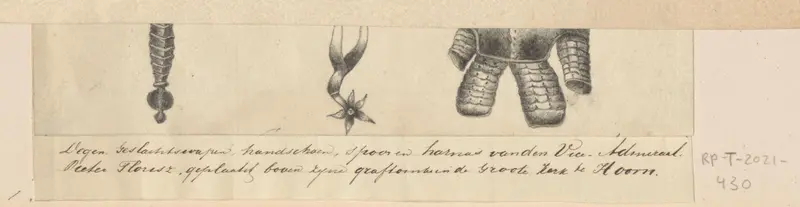 Degen. Geslachtswapen, handschoen, spoor en harnas van den Vice-Admiraal.
Pieter Florisz, geplaatst boven zijne graftombe in de Groote Kerk te Hoorn.
RP-T-2021-
430